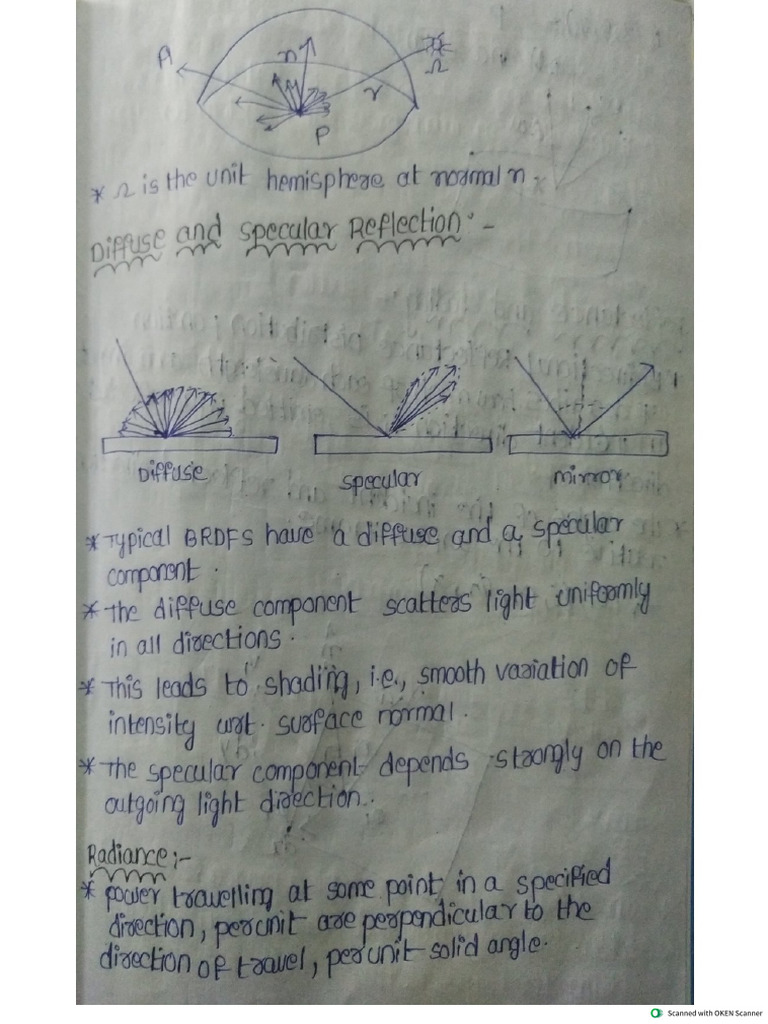 A
n
Ω
r
P
* Ω is the unit hemisphere at normal n.
Diffuse and Specular Reflection:-
Diffuse
specular
mirror
* Typical BRDFS have a diffuse and a specular
component.
* The diffuse component scatters light uniformly
in all directions.
* This leads to shading, i.e., smooth variation of
intensity wrt. surface normal.
* The specular component depends strongly on the
outgoing light direction.
Radiance:-
* power travelling at some point in a specified
direction, per unit are perpendicular to the
direction of travel, per unit solid angle.
Scanned with OKEN Scanner